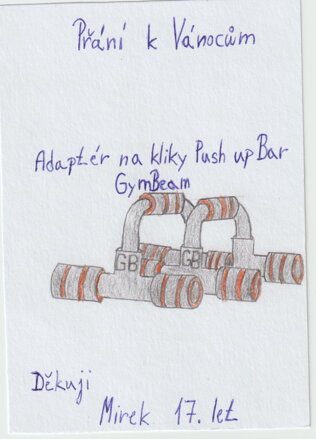 Přání k Vánocům
Adaptér na kliky Push up Bar
GymBeam
GB GB
Děkuji
Mirek 17. let